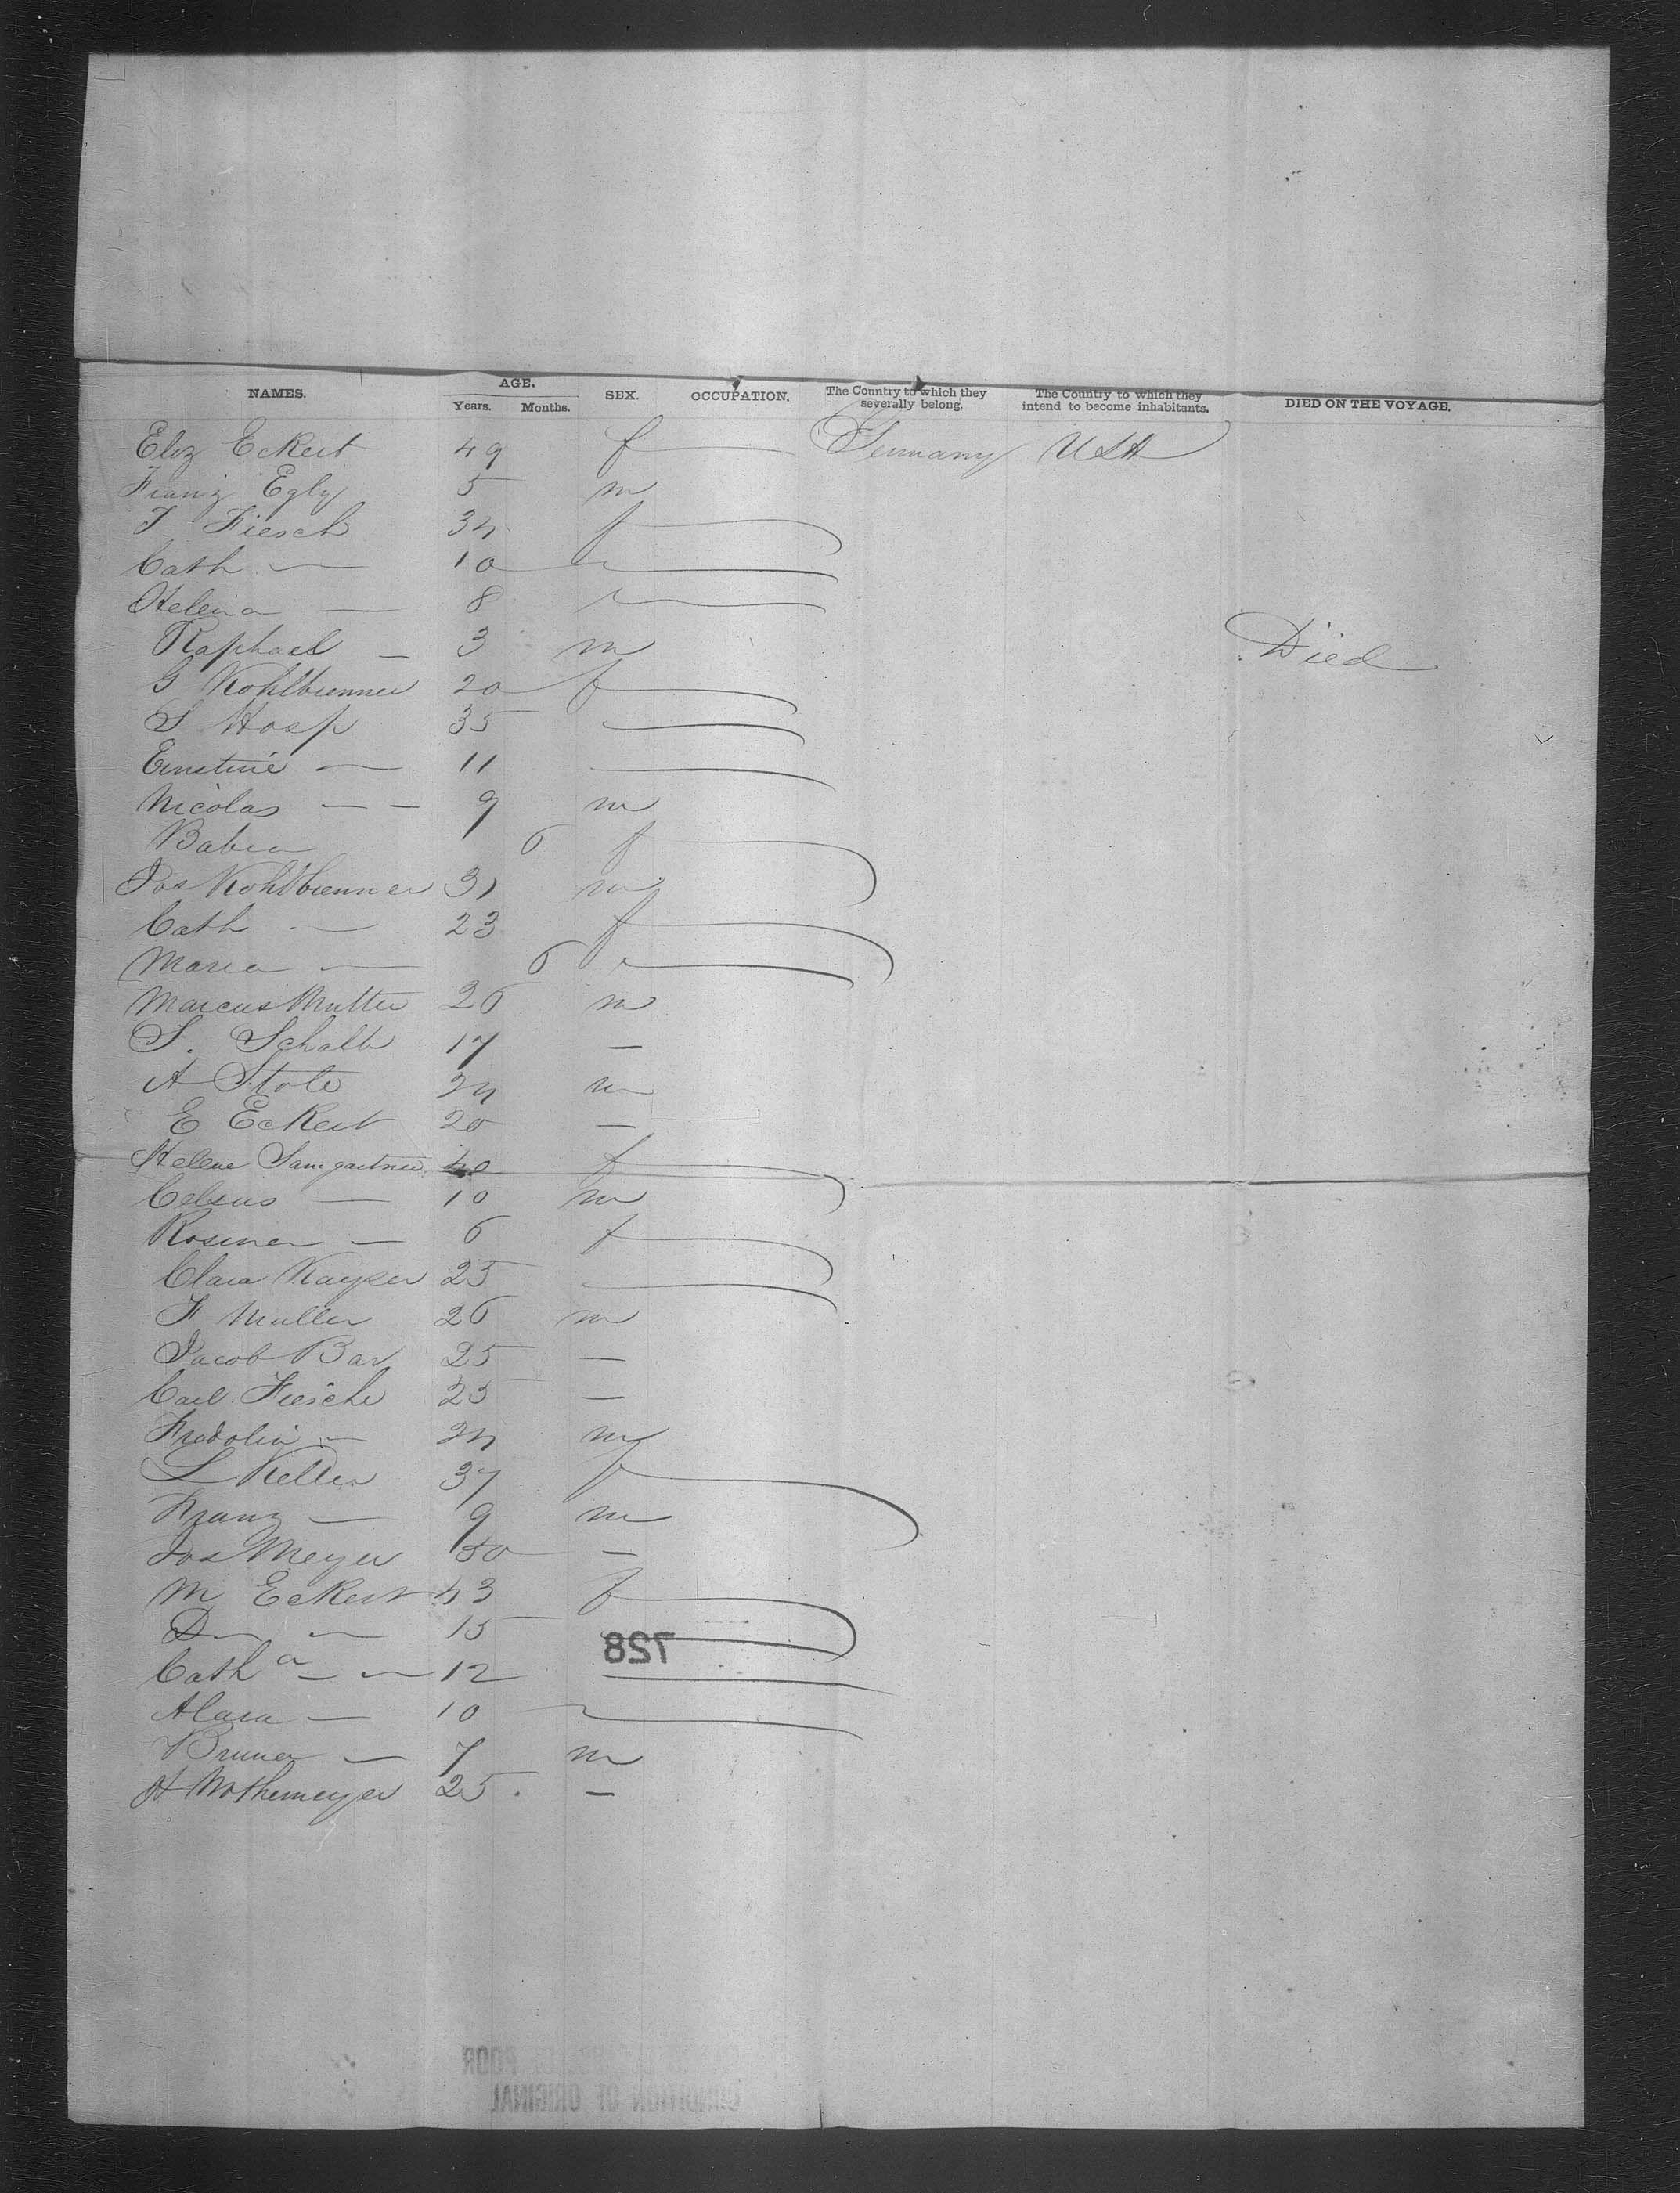 NAMES. AGE. Years. Months. SEX. OCCUPATION. The Country to which they severally belong. The Country to which they intend to become inhabitants. DIED ON THE VOYAGE.
Eliz Eckert 49 f Germany USA
Franz Egly 5 m
J Fiesch 34 f
Cath — 10
Helena — 8
Raphael — 3 m Died
G Kohlbrenner 20 f
S Hosp 35
Ernstine — 11
Nicolas — — 9 m
Babra 6 f
Jos Kohlbrenner 31 m
Cath — 23 f
Maria — 6
Marcus Mutter 26 m
S. Schalb 17 —
A Stole 24 m
E Eckert 20 —
Helene 40 f
Celsus — 10 m
Rosina — 6 f
Clara Kayser 25
F Muller 26 m
Jacob Bar 25 —
Carl Fiesche 25 —
Fridolin — 24 m
L Keller 37 f
Franz — 9 m
Jos Meyer 50 —
M Eckert 43 f
D — — 15
728
Cath a — — 12
Clara — 10
Bruno — 7 m
H Nothemeyer 25. —
POOR
CONDITION OF ORIGINAL